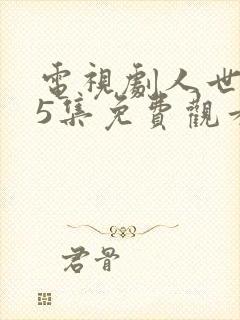 電視劇人世
5集免費觀看
君骨